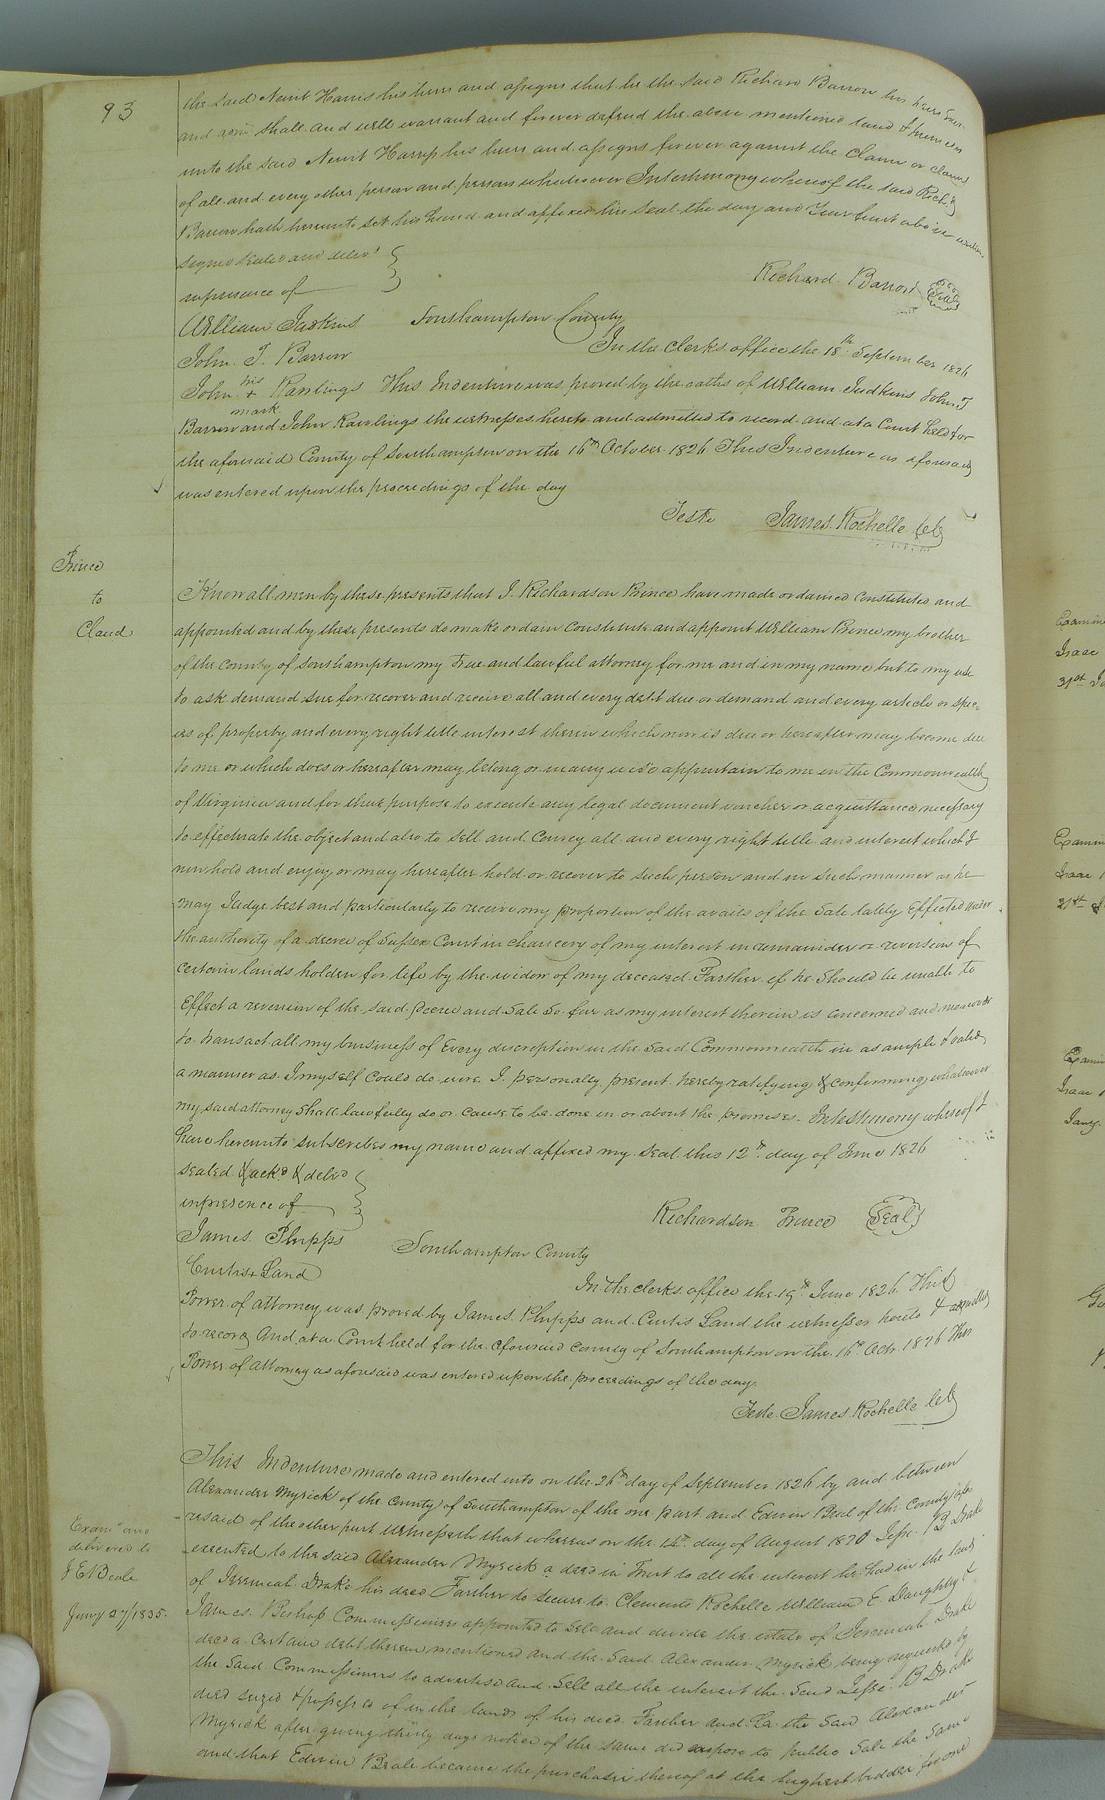 93
the said Newit Harris his heirs and assigns that he the said Richard Barrow his heirs Exrs
and adm shall and will warrant and forever defend the above mentioned land & premises
unto the said Newit Harriss his heirs and assigns forever against the claim or claims
of all and every other person and persons whatsoever In testimony whereof the said Rich.d
Barrow hath hereunto set his hand and affixed his seal the day and Year first above written
Signed sealed and deliv.d
in presence of
Richard Barrow Seal
William Judkins Southampton County
In the clerks office the 18th September 1826
John J. Barrow
John his + mark Rawlings This Indenture was proved by the oaths of William Judkins John J
Barrow and John Rawlings the witnesses hereto and admitted to record and at a Court held for
the aforesaid County of Southampton on the 16th October 1826 This Indenture as aforesaid
was entered upon the proceedings of the day
Teste James Rochelle clk
Prince
to
Claud
Know all men by these presents that I Richardson Prince have made ordained constituted and
appointed and by these presents do make ordain constitute and appoint William Prince my brother
of the County of Southampton my True and lawful attorney for me and in my name but to my use
to ask demand sue for recover and receive all and every debt due or demand and every article or spec
ies of property and every right title interest therein which now is due or hereafter may become due
to me or which does or hereafter may belong or in any wise appertain to me in the Commonwealth
of Virginia and for that purpose to execute any legal document voucher or acquittance necessary
to effectuate the object and also to sell and Convey all and every right title and interest which I
now hold and enjoy or may hereafter hold or recover to such person and in such manner as he
may Judge best and particularly to receive my proportion of the avails of the Sale lately Effected under
the authority of a decree of Sussex Court in chancery of my interest in remainder or reversion of
certain lands holden for life by the widow of my deceased Farther if he Should be unable to
Effect a reversion of the said Decree and Sale So far as my interest therein is concerned and moreover
to transact all my business of Every discreption in the Said Commonwealth in as ample & valid
a manner as I myself Could do were I personally present hereby ratifying & confirming whatever
my said attorney Shall lawfully do or cause to be done in or about the premises. In testimony whereof I
have hereunto subscribed my name and affixed my Seal this 12th day of June 1826
sealed & ackd & delivd
in presence of
Richardson Prince Seal
James Phipps Southampton County
Curtis Land
In the clerks office the 19th June 1826 This
Power of attorney was proved by James Phipps and Curtis Land the witnesses hereto & admitted
to record And at a Court held for the aforesaid County of Southampton on the 16th Octr 1826 This
Power of attorney as aforesaid was entered upon the proceedings of the day
Teste James Rochelle clk
Examd and
delivered to
J E Beale
Jany 27/1835
This Indenture made and entered into on the 26th day of September 1826 by and between
Alexander Myrick of the County of Southampton of the one part and Edwin Beal of the County afo
resaid of the other part Witnesseth that whereas on the 14th day of August 1820 Jesse B Drake
executed to the said Alexander Myrick a deed in Trust to all the interest he had in the land
of Jeremiah Drake his decd Farther to secure to Clements Rochelle William E Daughtry &
James Bishop Commissioners appointed to Sell and divide the estate of Jeremiah Drake
decd a Certain debt therein mentioned and the Said Alexander Myrick being required by
the Said Commissioners to advertise and Sell all the interest the Said Jesse B Drake
died seized & possessed of in the lands of his decd Farther and the Said Alexander
Myrick after giving thirty days notice of the same did expose to public Sale the Same
and that Edwin Beale became the purchaser thereof at the highest bidder for one